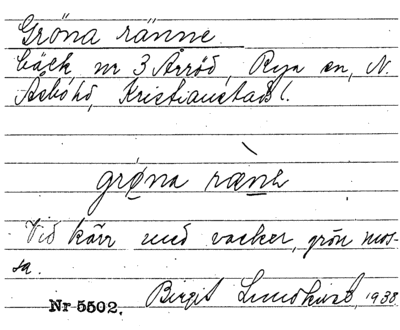 Gröna ränne
bäck, nr 3 Årröd, Rya sn, N.
Åsbo hd, Kristianstads l.
grø̱na ræ̱nɛ
Vid kärr med vacker, grön mos-
sa.
Nr 5502. Birgit Lundkvist, 1938